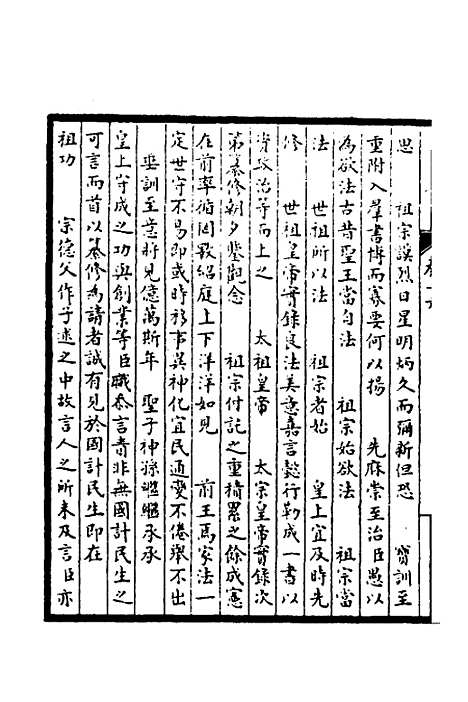 思　　祖宗謨烈日星明炳久而彌新但恐　　寳訓至
重附入羣書博而寡要何以揚　　先麻崇至治臣愚以
為欲法古昔聖王當自法　　祖宗始欲法　　祖宗當
法　　世祖所以法　　祖宗者始　　皇上宜及時先
修　　世祖皇帝實録良法美意嘉言懿行勒成一書以
資政治等而上之　　太祖皇帝　　太宗皇帝實録次
第纂修朝夕鑒觀念　　祖宗付託之重積累之餘成憲
在前率循罔斁紹庭上下洋洋如見　　前王爲家法一
定世守不易即或時移事異神化宜民通變不倦舉不出
　　垂訓至意將見億萬斯年　聖子神孫繼繼承承
皇上守成之功與創業等臣職忝言責非無國計民生之
可言而首以纂修為請者誠有見於國計民生即在
祖功　　宗德父作子述之中故言人之所未及言臣亦